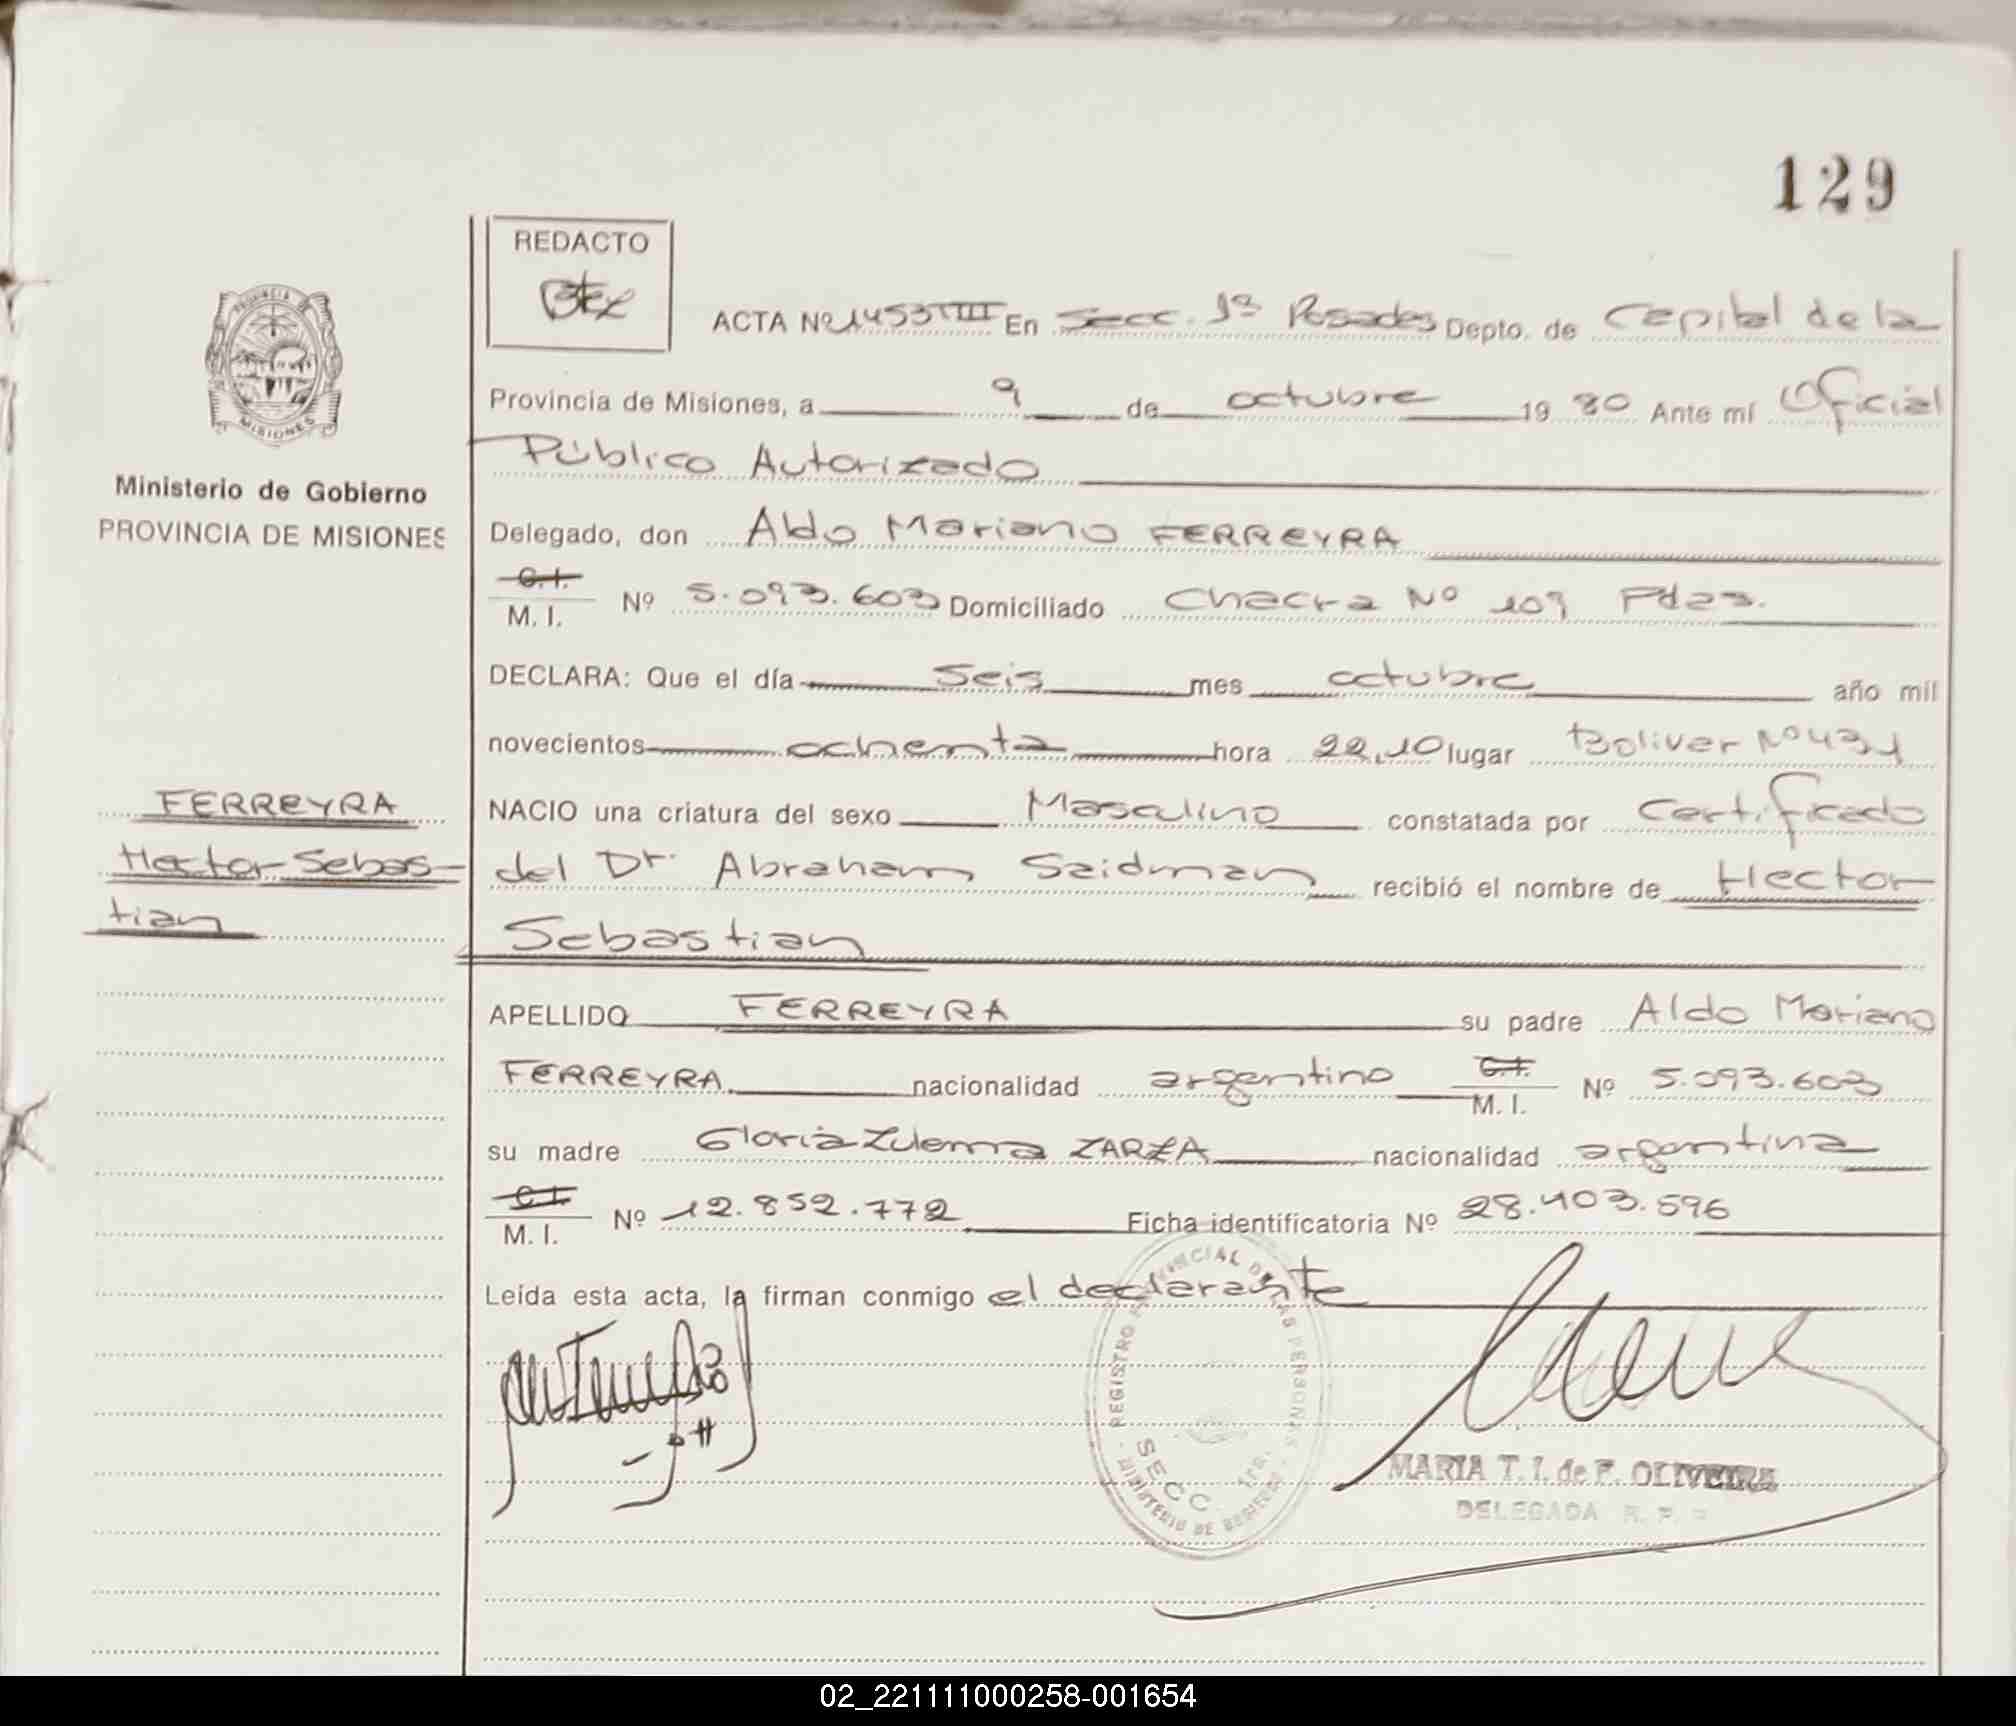 129
REDACTO
ACTA Nº 1453 VIII En Secc. 1ª Posadas Depto. de Capital de la
Provincia de Misiones, a 9 de octubre 19 80 Ante mí Oficial
Público Autorizado
PROVINCIA
MISIONES
Ministerio de Gobierno
PROVINCIA DE MISIONES
Delegado, don Aldo Mariano FERREYRA
C.I.
M. I. Nº 5.093.603 Domiciliado Chacra Nº 109 Pdas.
DECLARA: Que el día seis mes octubre año mil
novecientos ochenta hora 22,10 lugar Bolivar Nº 431
NACIO una criatura del sexo Masculino constatada por Certificado
del Dr. Abraham Saidman recibió el nombre de Hector
Sebastian
FERREYRA
Hector Sebas-
tian
APELLIDO FERREYRA su padre Aldo Mariano
FERREYRA nacionalidad argentino C.I.
M. I. Nº 5.093.603
su madre Gloria Zulema ZARZA nacionalidad argentina
C.I.
M. I. Nº 12.852.772 Ficha identificatoria Nº 28.403.596
Leída esta acta, la firman conmigo el declarante
REGISTRO PROVINCIAL DE LAS PERSONAS
MINISTERIO DE GOBIERNO
SECC. 1ra.
MARIA T. I. de F. OLIVEIRA
DELEGADA R. P.
02_221111000258-001654